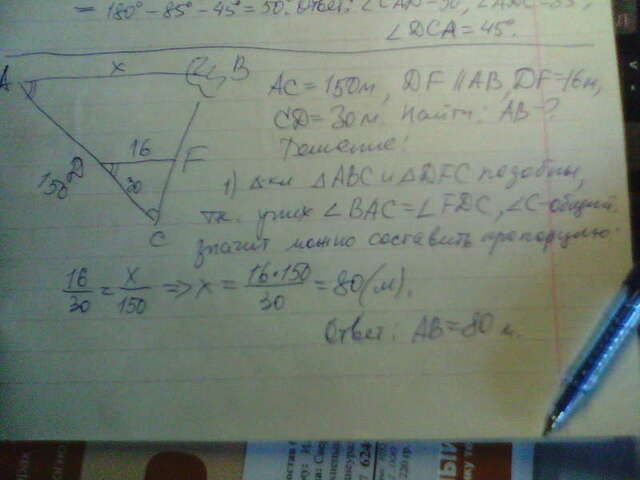 = 180° - 85° - 45° = 50°. Ответ: ∠CAD = 50, ∠ADC = 85°,
∠DCA = 45°.
A x B
AC = 150м, DF || AB, DF = 16м,
CD = 30м. Найти: AB - ?
Решение:
16
D F
150
30
C
1) △ки △ABC и △DFC подобны,
т.к. у них ∠BAC = ∠FDC, ∠C-общий.
значит можно составить пропорцию:
16/30 = x/150 => x = 16·150/30 = 80(м).
Ответ: AB = 80 м.